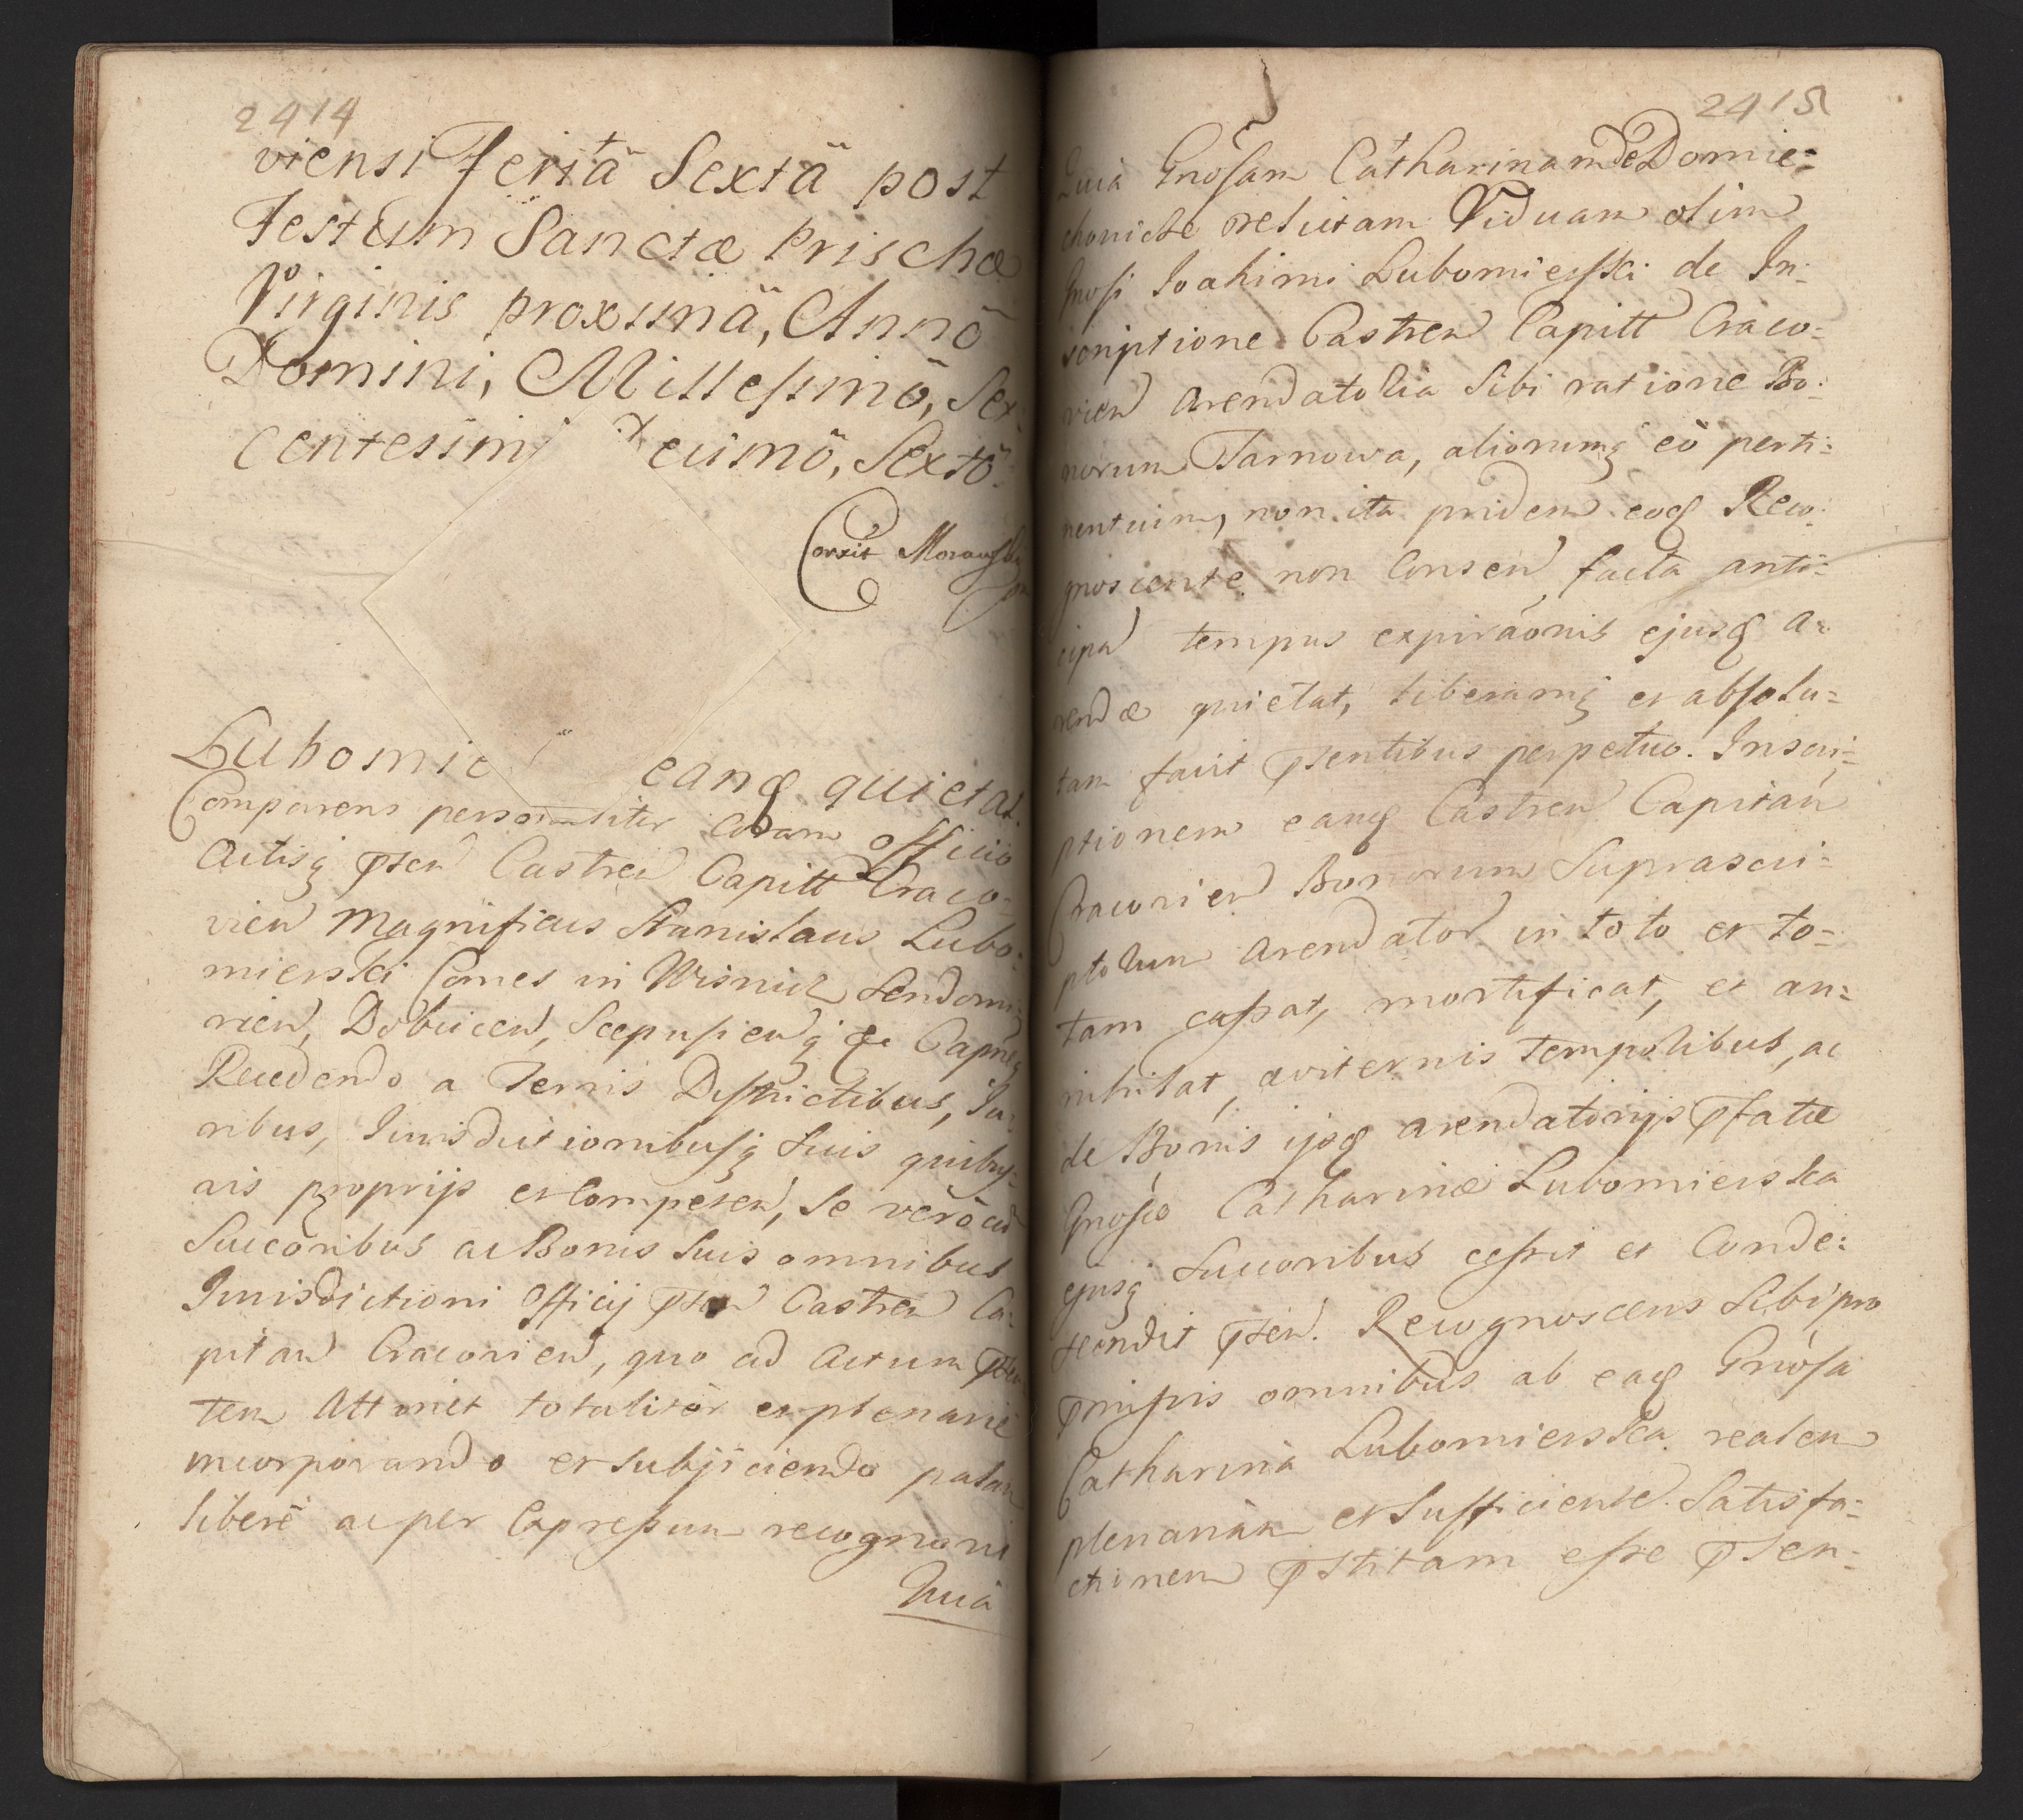 2414
viensi Feriâ Sextâ post
Festum Sanctæ Prischæ
Virginis proximâ, Annô
Domini, Millesimô, Sex-
centesim ecimô, Sextô.
Corxit Morawski
Lubomie eanq quietat.
Comparens personaliter Coram officio
Actisq pten Castren Capitt Craco-
vien Magnificus Stanislaus Lubo-
mierski Comes in Wisnicz Sendomi-
rien, Dobcicen, Scepusienq &c Capnes
Recedendo a Terris Districtibus, Iu-
ribus, Iurisductionibusq suis quibus-
vis proprijs et Competen, Se verò cũ
Succoribus ac Bonis suis omnibus
Iurisdictioni Officij pten Castren Ca-
pitan Cracovien, quo ad Actum pten
tem Attinet totalitèr et plenariè
incorporando et subjiciendo palam
liberè ac per Expressum recognovit
Quià
2415
Quià Gnosam Catharinam de Domie-
chowicze relictam Viduam olim
Gnosi Ioahimi Lubomierski de In-
scriptione Castren Capitt Craco-
vien Arendatoria sibi ratione Bo-
norum Tarnowa, aliorumq eò perti-
nentium, non ita pridem eoq Reco-
gnoscente non Consen facta anti-
cipa tempus expiraonis ejusq A-
rendæ quietat, liberamq et absolu-
tam facit ptentibus perpetuo. Inscri-
ptionem eanq Castren Capitan
Cracovien Bonorum Suprascri-
ptorum Arendator in toto et to-
tam cassat, mortificat, et an-
nihilat, æviternis temporibus, ac
de Bonis ijsq arendatorijs pfatæ
Gnosæ Catharinæ Lubomierska
ejusq Succoribus cessit et Conde-
scendit pten. Recognoscens sibi pro
pmissis omnibus ab eaq Gnosa
Catharinà Lubomierska realem
plenariam et Sufficiente. Satisfa-
ctionem pstitam esse pten-